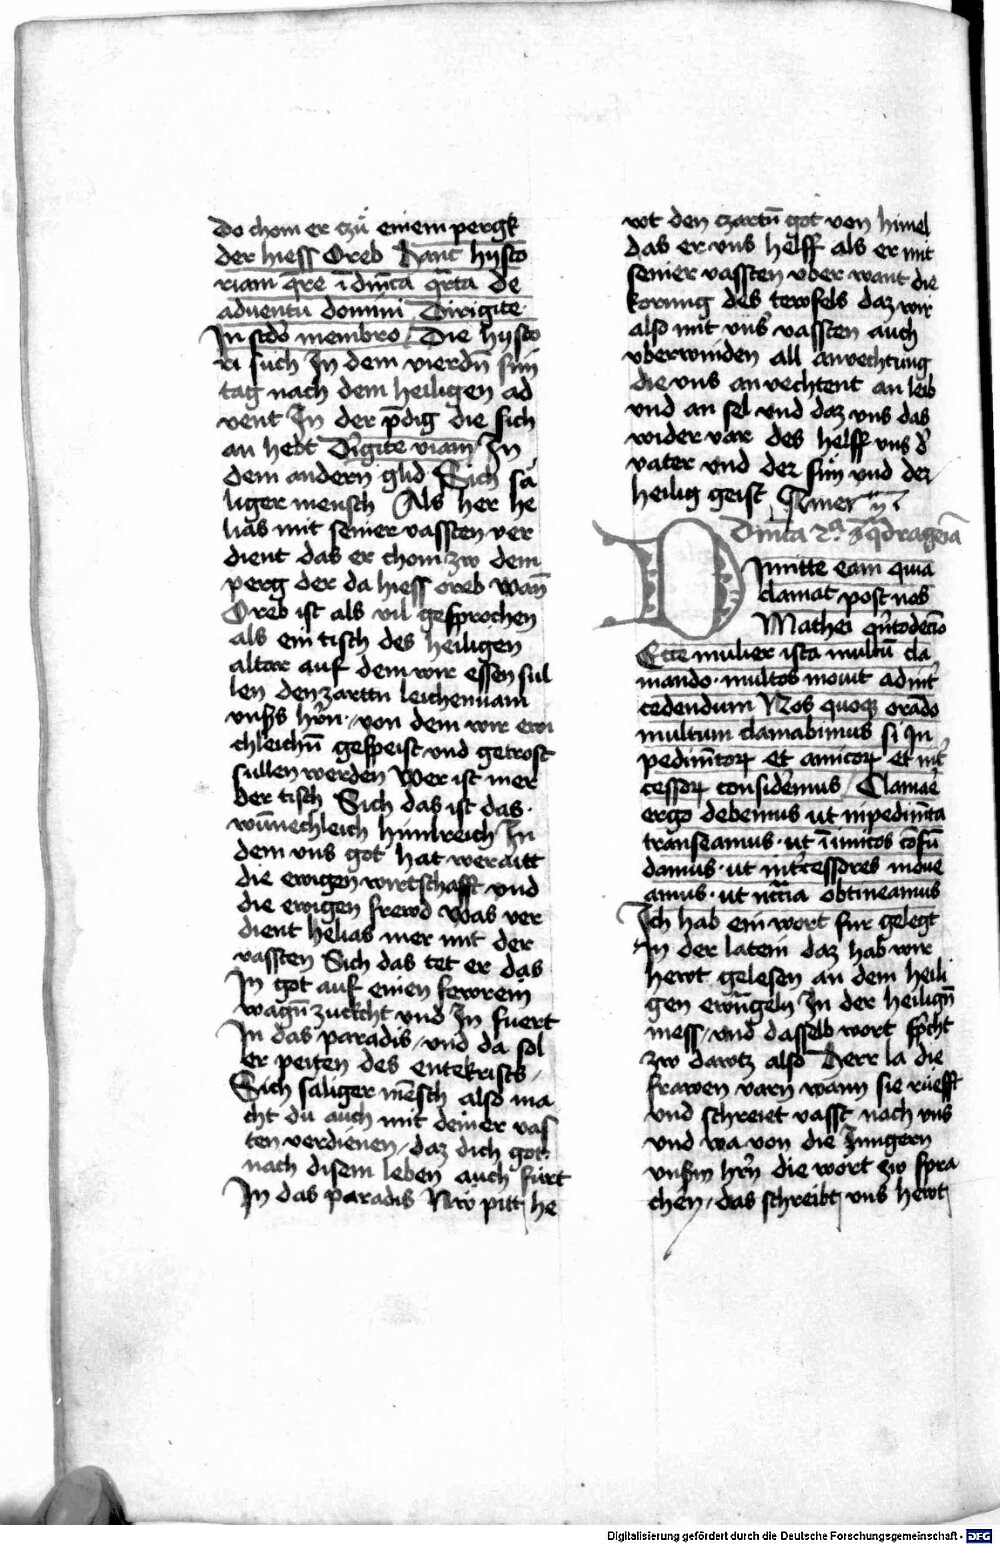 Do chom er czů einem pergk
der hiess Oreb Hanc hÿsto
riam q̄re ī dm̄ca q̄rta de
adventu domini Dirigite
In scd̄o membro Die hÿsto
ri such In dem vierdn̄ sun
tag nach dem heiligen ad
vent In der p̄dig die sich
an hebt Dirigite viam In
dem andern glid Sich sä
liger mensch Als her he
lias mit seiner vassten ver
dient das er chom zw dem
perg der da hiess oreb wan̄
Oreb ist als vil gesprochen
als ein tisch des heiligen
altar auf dem wir essen sul
len den zarttn leichennam
vnsers hr̄n von dem wir ewi
chleichn̄ gespeist vnd getrost
sullen werden Wer ist mer
der tisch Sich das ist das
wun̄echleich himlreich In
dem vns got hat weraitt
die ewigen wirtschafft vnd
die ewigen frewd Was ver
dient helias mer mit der
vassten Sich das tet er das
In got auf einen fewrein
wagn̄ zuckcht vnd In fuert
In das paradis vnd da sol
er peiten des entekrists
Sich säliger mēsch also ma
cht du auch mit deiner vas
ten verdienen daz dich got
nach disem leben auch fürt
In das paradis Nw pitt he
wt den czartn̄ got von himel
das er vns helff als er mit
seiner vassten vber want die
korung des tewfels daz wir
also mit vnser vassten auch
vberwinden all anvechtung
die vns anvechtent an leib
vnd an sel vnd daz vns das
wider var des helff vns d̄
vater vnd der sun vnd der
heilig geist Amen
Dm̄ca 2ᵃ
Dimitte eam quia
clamat post nos
Mathei qͥntodecīo
Ecce mulier ista multū cla
mando multos movit ad int̄
cedendum Nos quoque orādo
multum clamabimus si In
pedimn̄torum et amicorum et int̄
cessorum considemus Clamāe
ergo debemus ut inpedimn̄ta
transeamus ut īimicos cōfun
damus ut int̄cessores move
amus ut obtineamus
Ich hab ein wort fur gelegt
In der latein daz hab wir
hewt gelesen an dem heili
gen ewāngely In der heilign̄
mess vnd dasselb wort sp̄cht
zw dawtz also Herr la die
frawen varn wann sie rüefft
vnd schreiet vasst nach vns
vnd wa von die Jungern
vnsers hrn̄ die wort zw spra
chen das schreibt vns hewt
Digitalisierung gefördert durch die Deutsche Forschungsgemeinschaft - DFG